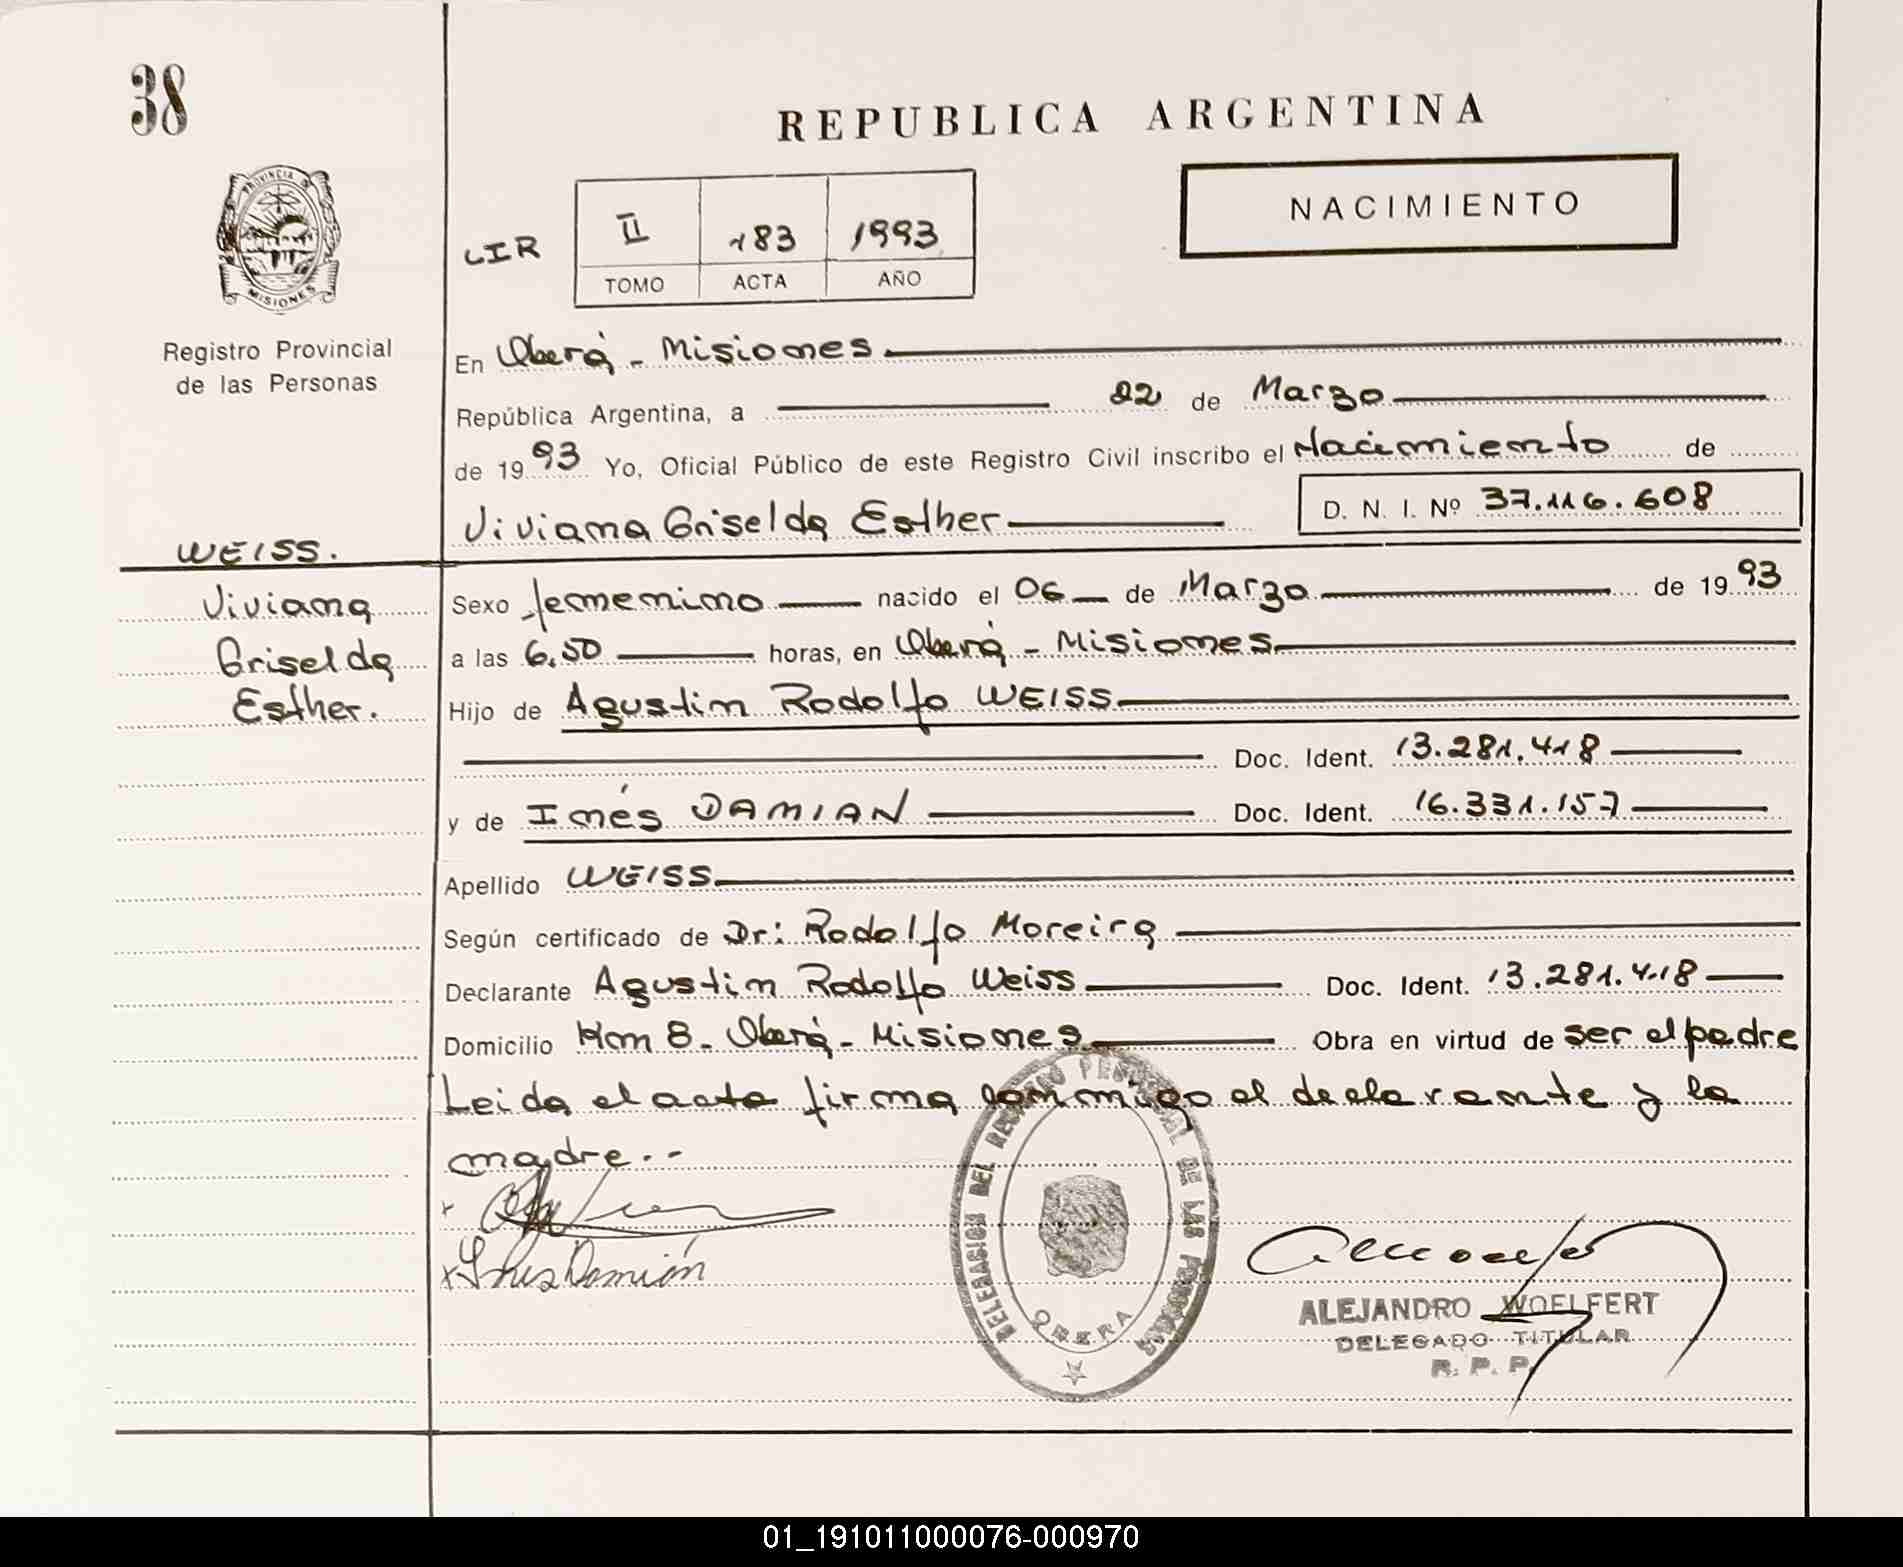 38
REPUBLICA ARGENTINA
NACIMIENTO
PROVINCIA DE
MISIONES
LIR
II 183 1993
TOMO ACTA AÑO
Registro Provincial
de las Personas
En Oberá - Misiones
República Argentina, a 22 de Marzo
de 1993 Yo, Oficial Público de este Registro Civil inscribo el Nacimiento de
Viviana Griselda Esther D. N. I. Nº 37.116.608
WEISS.
Viviana
Griselda
Esther.
Sexo femenino nacido el 06 de Marzo de 1993
a las 6,50 horas, en Oberá - Misiones
Hijo de Agustin Rodolfo WEISS
Doc. Ident. 13.281.418
y de Inés DAMIAN Doc. Ident. 16.331.157
Apellido WEISS
Según certificado de Dr: Rodolfo Moreira
Declarante Agustin Rodolfo Weiss Doc. Ident. 13.281.418
Domicilio Km 8 - Oberá - Misiones Obra en virtud de ser el padre
Leida el acta firma conmigo el declarante y la
madre.--
x Inés Damián
DELEGACION DEL REGISTRO PROVINCIAL DE LAS PERSONAS
OBERA
ALEJANDRO WOELFERT
DELEGADO TITULAR
R. P. P.
01_191011000076-000970